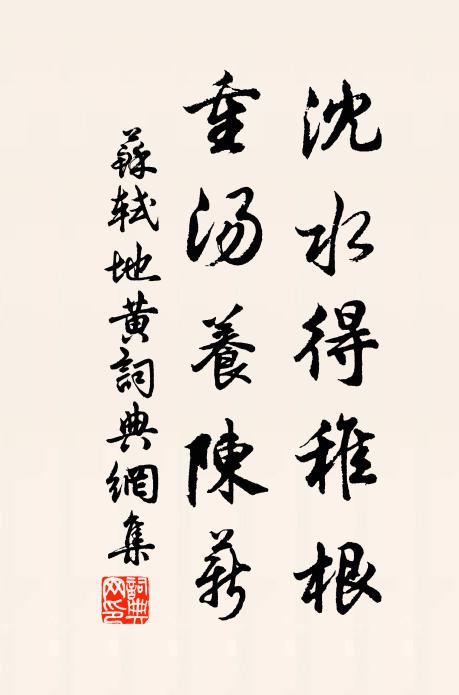 沈水得稚根
重汤養陳薪
蘇軾地黄詞典網集
詞典網印